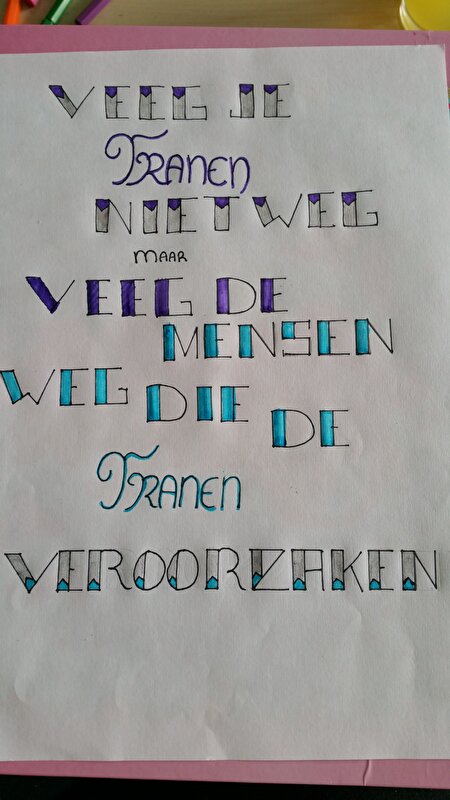 VEEG JE
TRANEN
NIET WEG
MAAR
VEEG DE
MENSEN
WEG DIE DE
TRANEN
VEROORZAKEN